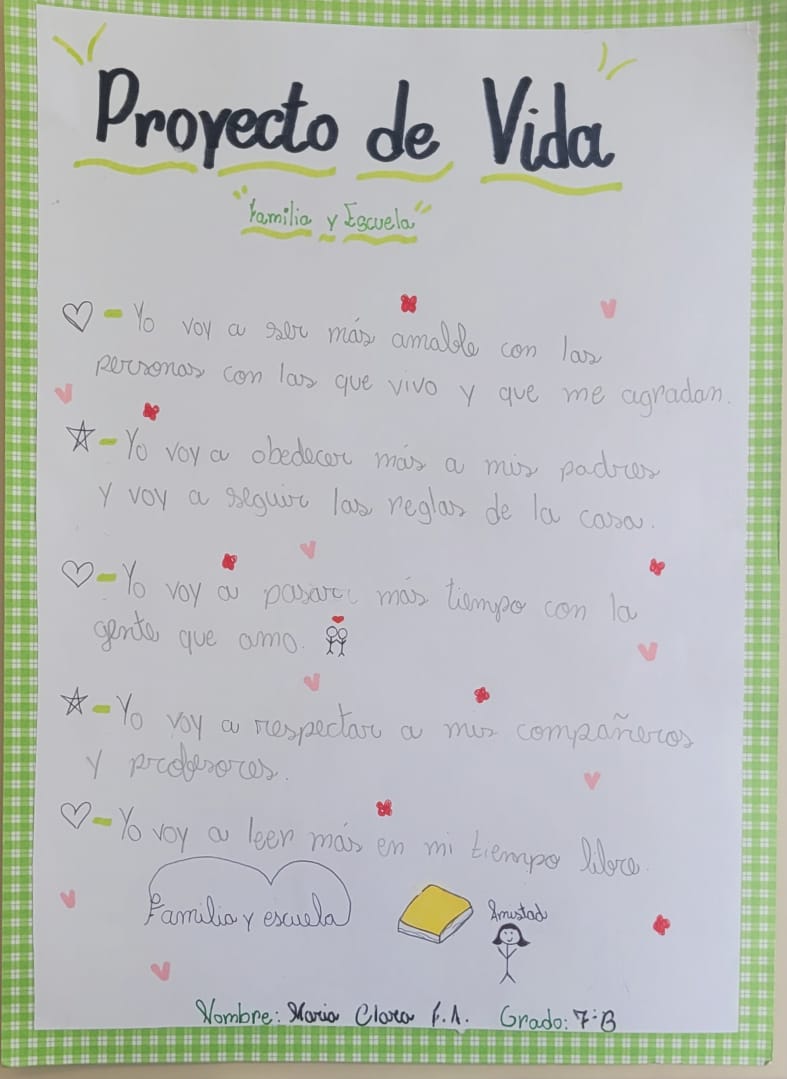 Proyecto de Vida
"Familia y Escuela"
- Yo voy a ser más amable con las
personas con las que vivo y que me agradan.
- Yo voy a obedecer más a mis padres
y voy a seguir las reglas de la casa.
- Yo voy a pasar más tiempo con la
gente que amo.
- Yo voy a respectar a mis compañeros
y profesores.
- Yo voy a leer más en mi tiempo libre.
Familia y escuela
Amistad
Nombre: Maria Clara F.A. Grado: 7-B